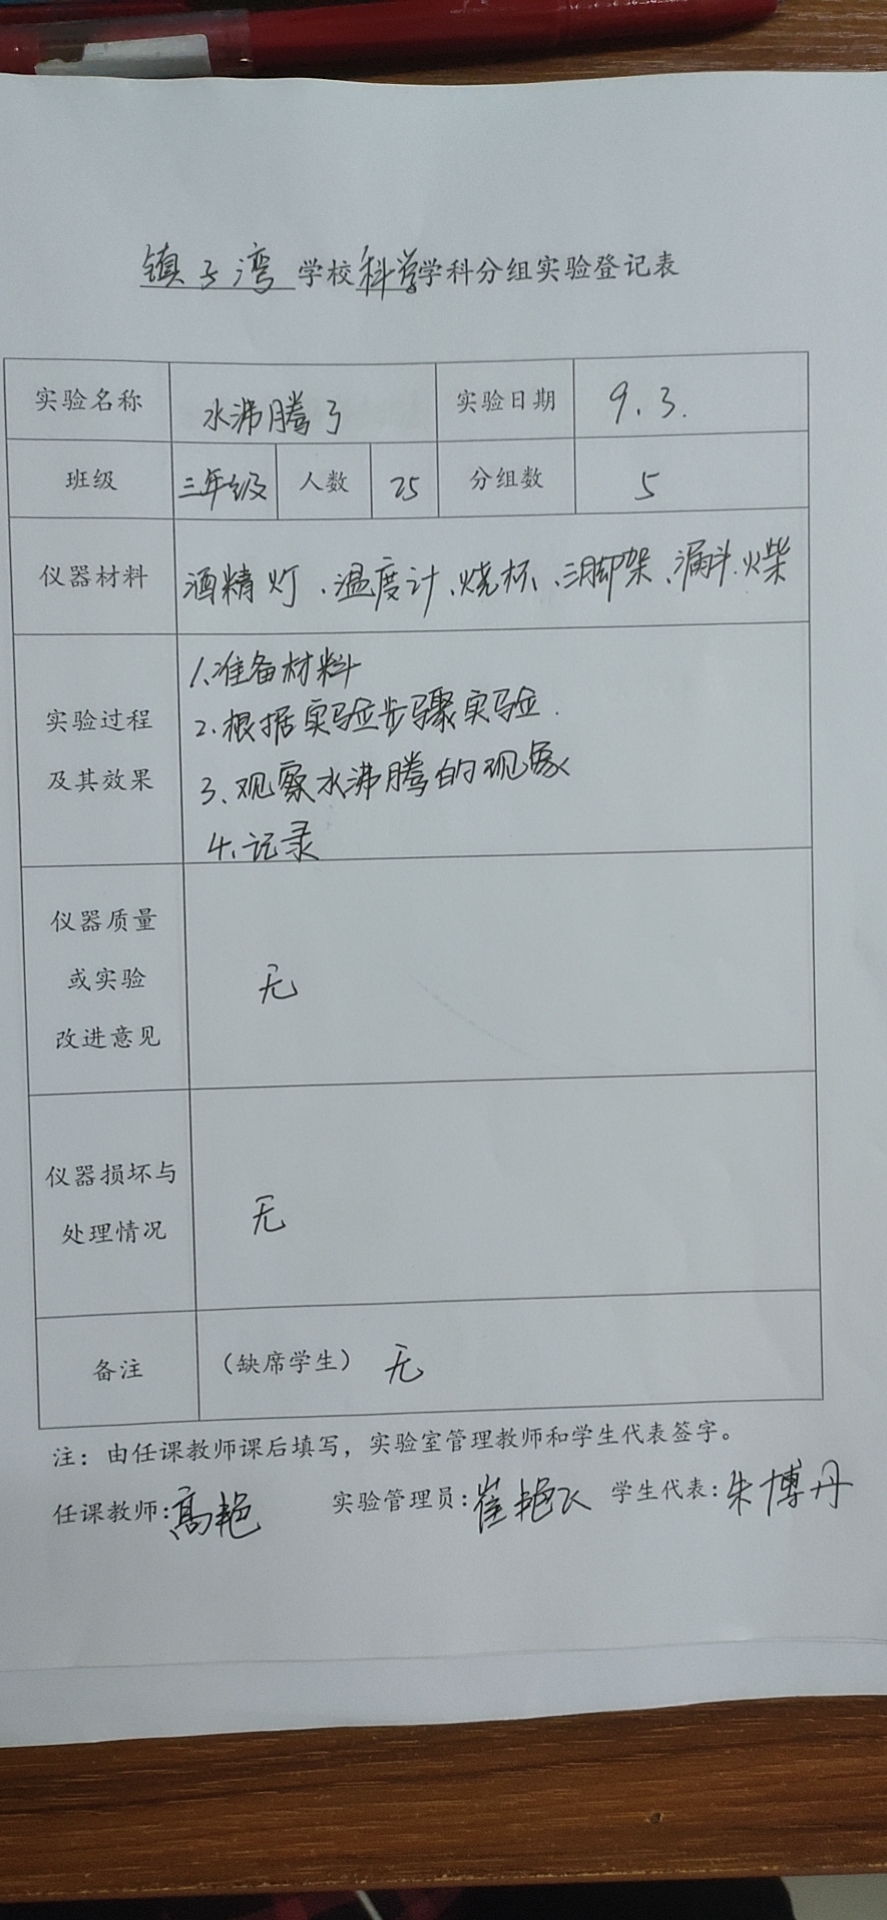 镇子湾学校科学学科分组实验登记表
实验名称 水沸腾了 实验日期 9.3.
班级 三年级 人数 25 分组数 5
仪器材料 酒精灯、温度计、烧杯、三脚架、漏斗、火柴
1、准备材料
实验过程 2、根据实验步骤实验.
及其效果 3、观察水沸腾的现象
4、记录
仪器质量
或实验 无
改进意见
仪器损坏与
处理情况 无
备注 （缺席学生） 无
注：由任课教师课后填写，实验室管理教师和学生代表签字。
任课教师:高艳 实验管理员:崔艳飞 学生代表:朱博丹